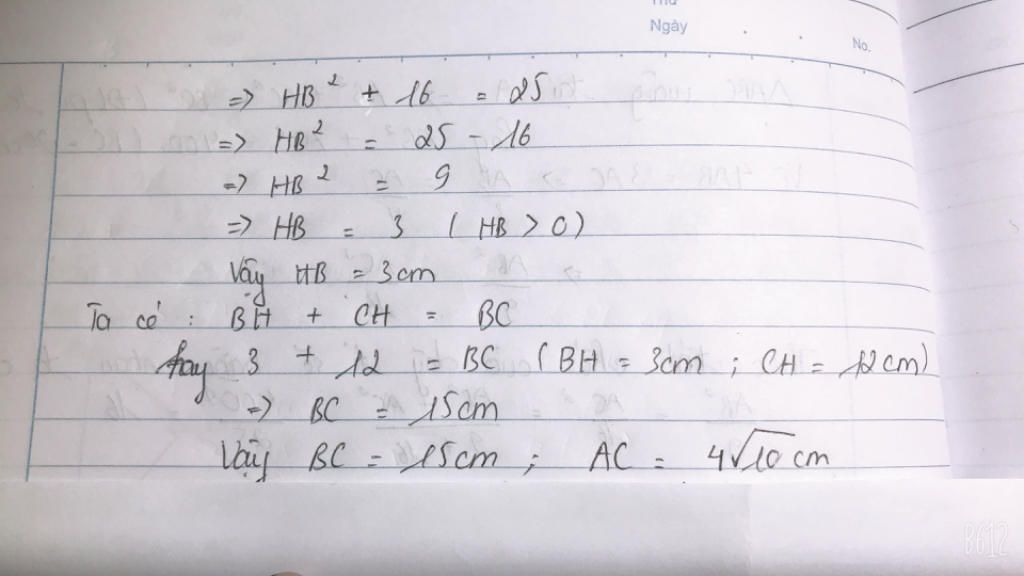 Thứ
Ngày
No.
=> HB² + 16 = 25
=> HB² = 25 - 16
=> HB² = 9
=> HB = 3 ( HB > 0 )
Vậy HB = 3cm
Ta có : BH + CH = BC
hay 3 + 12 = BC ( BH = 3cm ; CH = 12cm )
=> BC = 15cm
Vậy BC = 15cm ; AC = 4√10 cm
B612